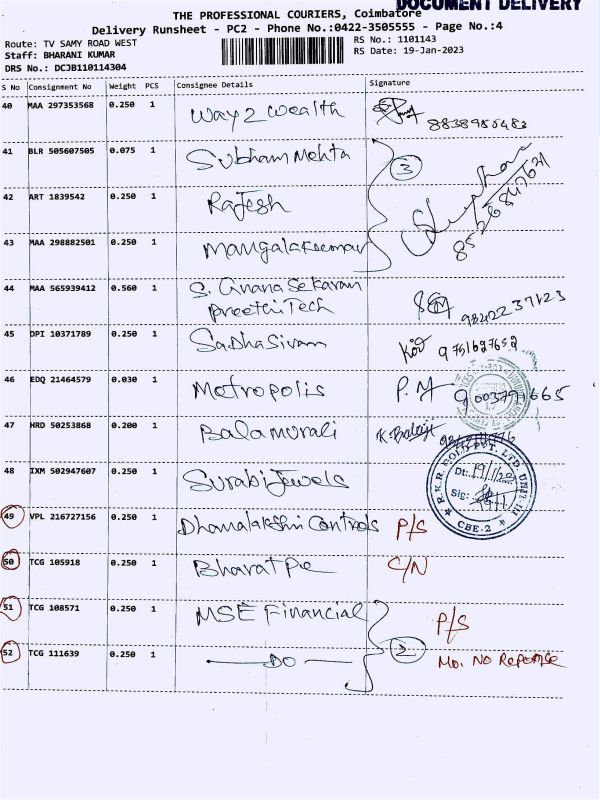 DOCUMENT DELIVERY
THE PROFESSIONAL COURIERS, Coimbatore
Delivery Runsheet - PC2 - Phone No.:0422-3505555 - Page No.:4
Route: TV SAMY ROAD WEST
RS No.: 1101143
Staff: BHARANI KUMAR
RS Date: 19-Jan-2023
DRS No.: DCJB110114304
S No Consignment No Weight PCS Consignee Details Signature
40 MAA 297353568 0.250 1 Way 2 Wealth 8838985483
41 BLR 505607505 0.075 1 Subham Mehta
3
42 ART 1839542 0.250 1 Rajesh
43 MAA 298882501 0.250 1 Mangalakumar
44 MAA 565939412 0.560 1 S. Gnana Sekaran
Preethi Tech 9842237123
45 DPI 10371789 0.250 1 Sadhasivam 9751627652
46 EDQ 21464579 0.030 1 Metropolis P.M 9003791665
47 HRD 50253868 0.200 1 Balamurali K. Balaji
48 IXM 502947607 0.250 1 Surabi Jewels
R.K.R. GOLD PVT. LTD. UNIT III
Dt: 19/1/
Sig:
CBE-2
49 VPL 216727156 0.250 1 Dhanalakshmi Controls P/S
50 TCG 105918 0.250 1 Bharat Pe C/N
51 TCG 108571 0.250 1 MSE Financial P/S
2
52 TCG 111639 0.250 1 DO Mo. No Reponse